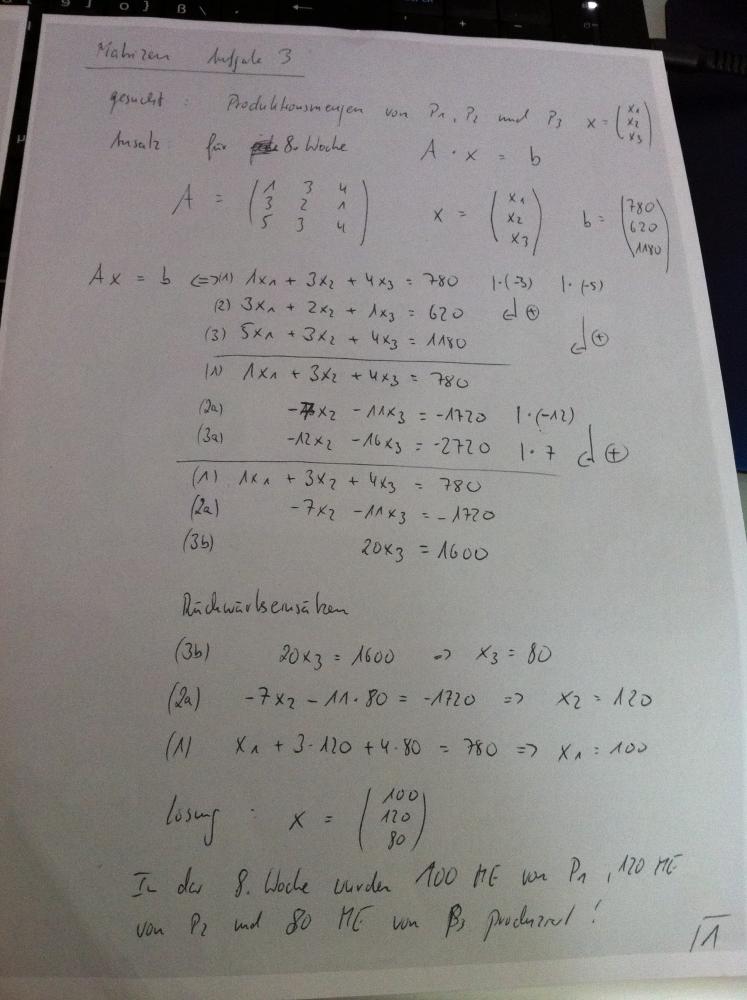 Matrizen Aufgabe 3
gesucht: Produktionsmengen von P1, P2 und P3 x = (x1 x2 x3)
Ansatz: für 8. Woche A · x = b
A = (1 3 4
3 2 1
5 3 4) x = (x1 x2 x3) b = (780 620 1180)
Ax = b <=> (1) 1x1 + 3x2 + 4x3 = 780 |·(-3) |·(-5)
(2) 3x1 + 2x2 + 1x3 = 620 ↲ ⊕
(3) 5x1 + 3x2 + 4x3 = 1180 ↲ ⊕
(1) 1x1 + 3x2 + 4x3 = 780
(2a) -7x2 - 11x3 = -1720 |·(-12)
(3a) -12x2 - 16x3 = -2720 |·7 ↲ ⊕
(1) 1x1 + 3x2 + 4x3 = 780
(2a) -7x2 - 11x3 = -1720
(3b) 20x3 = 1600
Rückwärtseinsätzen
(3b) 20x3 = 1600 => x3 = 80
(2a) -7x2 - 11·80 = -1720 => x2 = 120
(1) x1 + 3·120 + 4·80 = 780 => x1 = 100
Lösung: x = (100 120 80)
In der 8. Woche wurden 100 ME von P1, 120 ME
von P2 und 80 ME von P3 produziert!